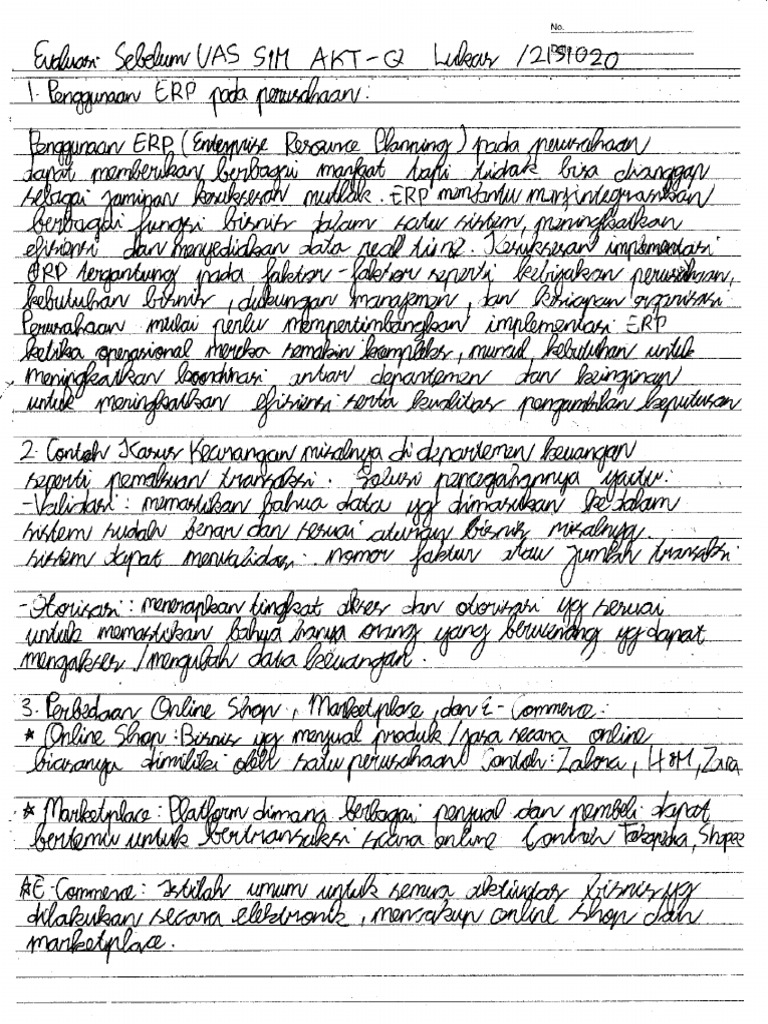 No.
Date
Evaluasi Sebelum UAS SIM AKT-Q Lukas /
1. Penggunaan ERP pada perusahaan:
Penggunaan ERP (Enterprise Resource Planning) pada perusahaan
dapat memberikan berbagai manfaat tapi tidak bisa dianggap
sebagai jaminan kesuksesan mutlak. ERP membantu mengintegrasikan
berbagai fungsi bisnis dalam satu sistem, meningkatkan
efisiensi dan menyediakan data real time. Kesuksesan implementasi
ERP tergantung pada faktor-faktor seperti kebijakan perusahaan,
kebutuhan bisnis, dukungan manajemen, dan kesiapan organisasi.
Perusahaan mulai perlu mempertimbangkan implementasi ERP
ketika operasional mereka semakin kompleks, muncul kebutuhan untuk
meningkatkan koordinasi antar departemen dan keinginan
untuk meningkatkan efisiensi serta kualitas pengambilan keputusan
2. Contoh Kasus Kecurangan misalnya di departemen keuangan
seperti pemalsuan transaksi. Solusi pencegahannya yaitu:
-Validasi: memastikan bahwa data yg dimasukan ke dalam
sistem sudah benar dan sesuai aturan bisnis misalnya
sistem dapat memvalidasi nomor faktur atau jumlah transaksi
-Otorisasi: menerapkan tingkat akses dan otorisasi yg sesuai
untuk memastikan bahwa hanya orang yang berwenang yg dapat
mengakses/mengubah data keuangan.
3. Perbedaan Online Shop, Marketplace, dan E-Commerce:
* Online Shop: Bisnis yg menjual produk/jasa secara online
biasanya dimiliki oleh satu perusahaan Contoh: Zalora, H&M, Zara
* Marketplace: Platform dimana berbagai penjual dan pembeli dapat
bertemu untuk bertransaksi secara online Contoh Tokopedia, Shopee
*E-Commerce: Istilah umum untuk semua aktivitas bisnis yg
dilakukan secara elektronik, mencakup online shop dan
marketplace.